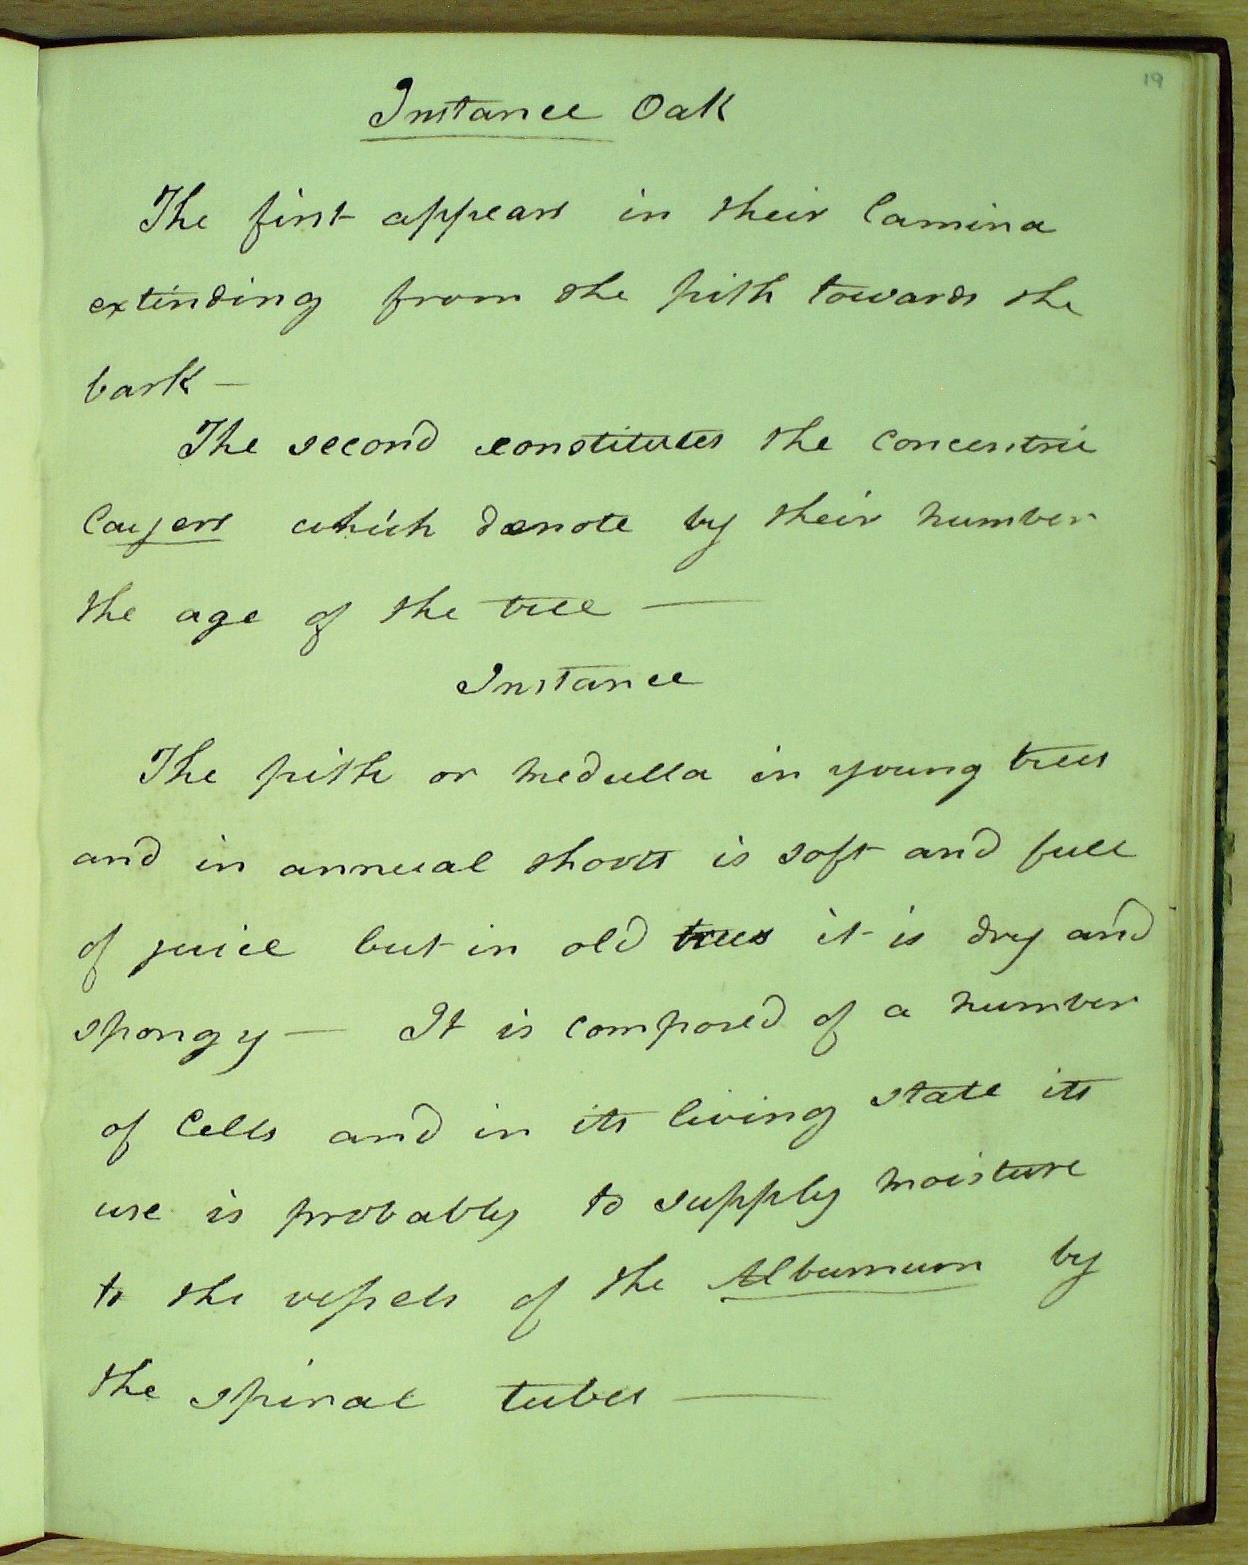 19
Instance Oak
The first appears in their lamina
extending from the pith towards the
bark —
The second constitutes the concentric
layers which denote by their number
the age of the tree —
Instance
The pith or medulla in young trees
and in annual shoots is soft and full
of juice but in old trees it is dry and
spongy — It is composed of a number
of Cells and in its living state its
use is probably to supply moisture
to the vessels of the Alburnum by
the spiral tubes —